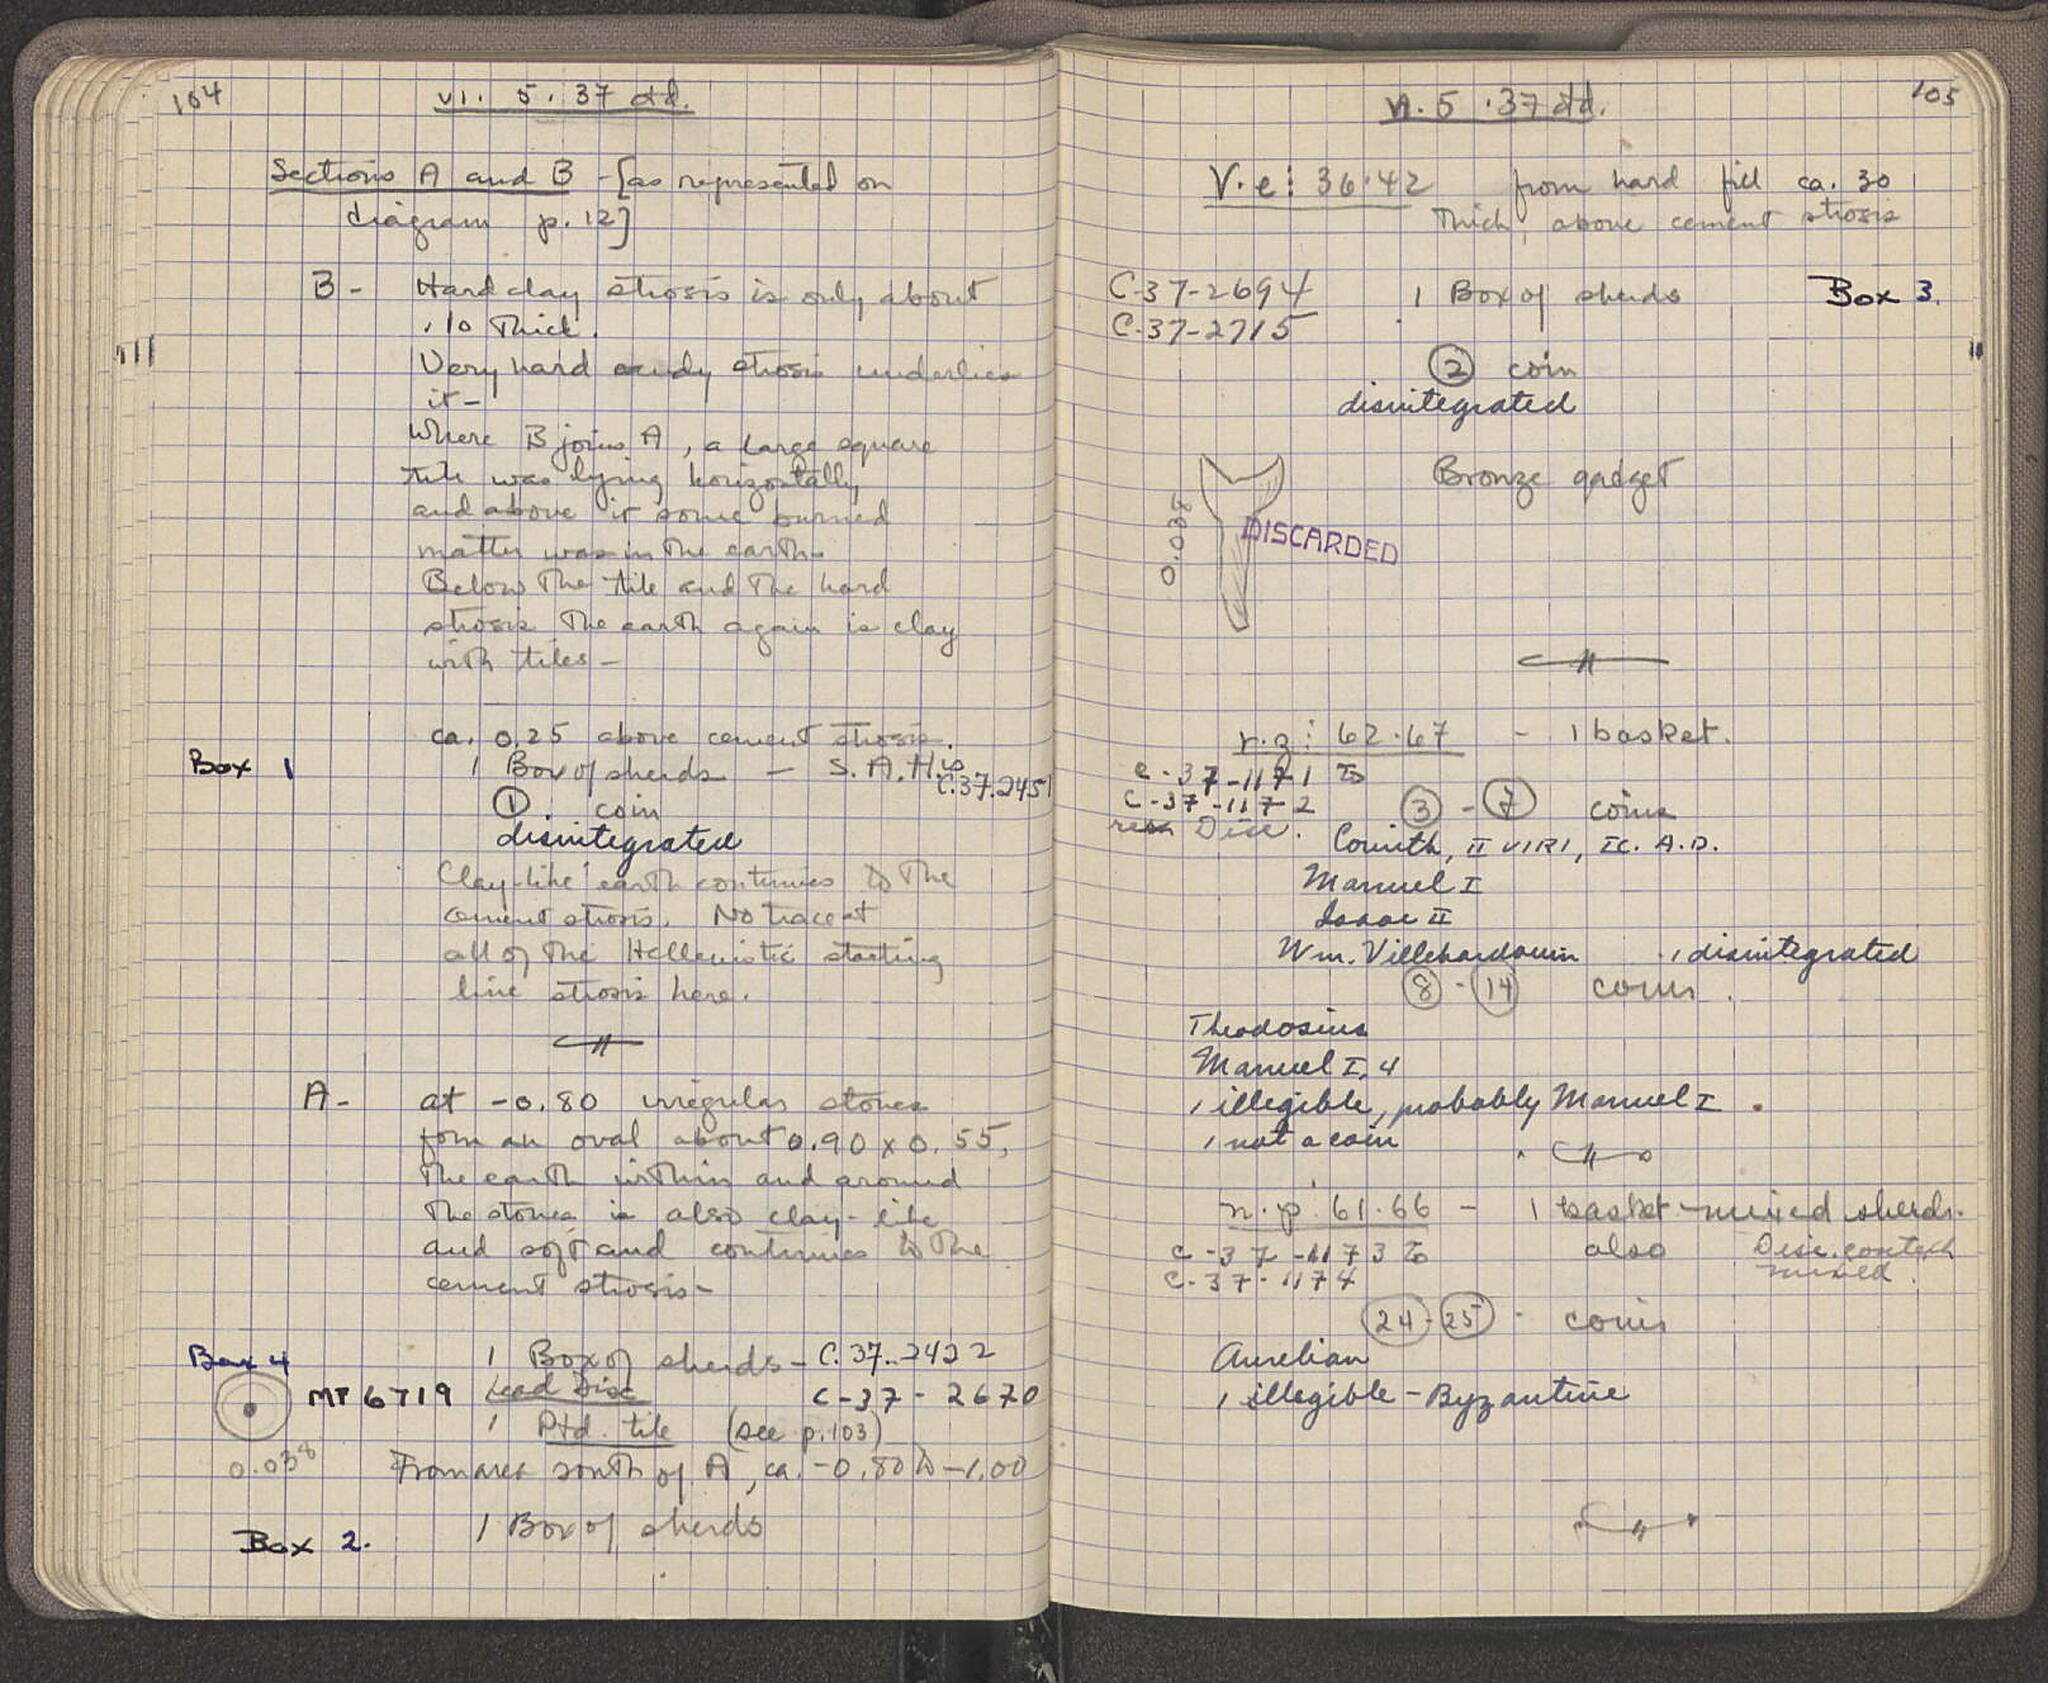 104
VI. 5. 37 ctd.
Sections A and B - [as represented on
diagram p. 12]
B - Hard clay strosis is only about
.10 thick.
Very hard sandy strosis underlies
it -
Where B joins A, a large square
tile was lying horizontally
and above it some burned
matter was in the earth.
Below the tile and the hard
strosis the earth again is clay
with tiles -
ca. 0.25 above cement strosis.
Box 1 1 Box of sherds - S. A. H. is
C.37.2451
① . coin
disintegrated
Clay-like earth continues to the
cement strosis. No trace at
all of the Hellenistic starting
line strosis here.
A - at -0.80 irregular stones
form an oval about 0.90 x 0.55,
the earth within and around
the stones is also clay-like
and soft and continues to the
cement strosis -
Box 4 1 Box of sherds - C.37..2422
MT 6719 Lead Disc C-37-2670
1 Ptd. tile (see p.103)
0.038 From area south of A, ca. -0.80 to -1.00
1 Box of sherds
Box 2.
105
VI. 5. 37 ctd.
V.e: 36.42 from hard fill ca. 30
thick, above cement strosis
C-37-2694 1 Box of sherds Box 3.
C-37-2715
② coin
disintegrated
Bronze gadget
0.038
DISCARDED
r.z: 62.67 - 1 basket.
C-37-1171 to
C-37-1172 ③ - ⑦ coins
Disc.
Corinth, II VIRI, I C. A.D.
Manuel I
Isaac II
Wm. Villehardouin 1 disintegrated
⑧ - ⑭ coins.
Theodosius
Manuel I, 4
1 illegible, probably Manuel I
1 not a coin
n.p: 61.66 - 1 basket - mixed sherds.
C-37-1173 to also Disc. context
C-37-1174 mixed.
㉔ - ㉕ . coins
Aurelian
1 illegible - Byzantine